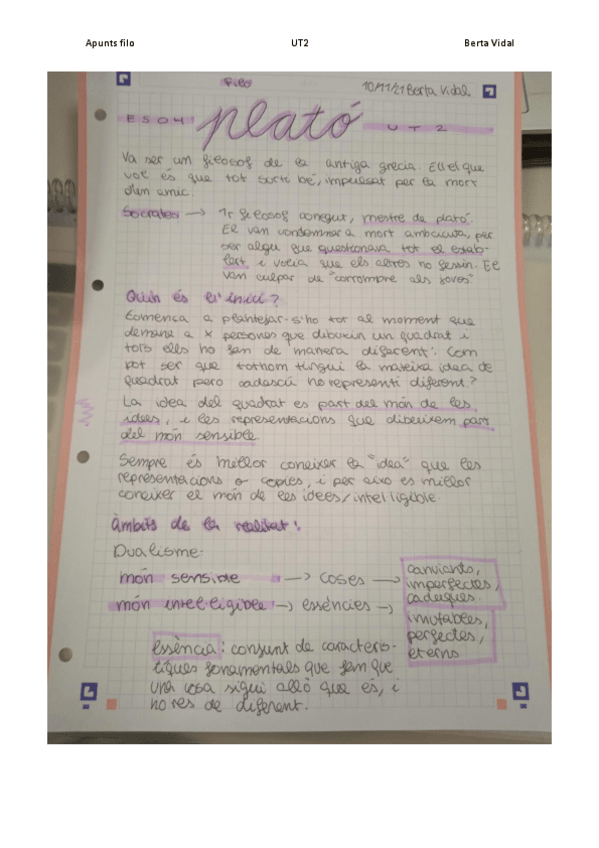 Apunts filo UT2 Berta Vidal
Filo 10/11/21 Berta Vidal
ESO4 plató UT2
Va ser un filosof de la antiga grecia. Ell el que
vol és que tot surti bé, impulsat per la mort
d'un amic.
Socrates → 1r filosof conegut, mestre de plató.
El van condemnar a mort amb cicuta, per
ser algu que questionava tot el estab-
lert i volia que els altres ho fessin. El
van culpar de "corrompre als joves"
Quin és l'inici?
Comença a plantejar-s'ho tot al moment que
demana a x persones que dibuixin un quadrat i
tots ells ho fan de manera diferent: Com
pot ser que tothom tingui la mateixa idea de
quadrat pero cadascú ho representi diferent?
La idea del quadrat es part del món de les
idees, i les representacions que dibuixem part
del món sensible
Sempre és millor coneixer la "idea" que les
representacions o copies, i per aixo es millor
coneixer el món de les idees/intel·ligible.
Àmbits de la realitat:
Dualisme-
món sensible → coses → canviants,
imperfectes,
caduques.
món intel·ligible → essències → imutables,
perfectes,
eterns
essència: conjunt de caracterís-
tiques fonamentals que fan que
una cosa sigui allò que és, i
no res de diferent.